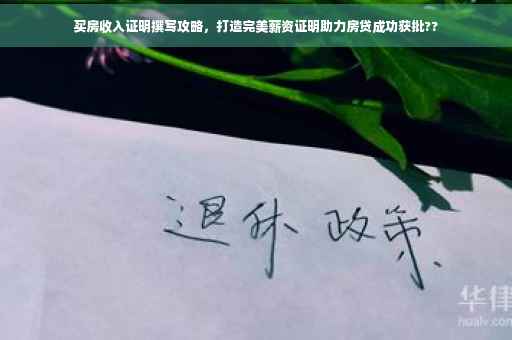 买房收入证明撰写攻略，打造完美薪资证明助力房贷成功获批??
退休 政策
华律
hualv.com